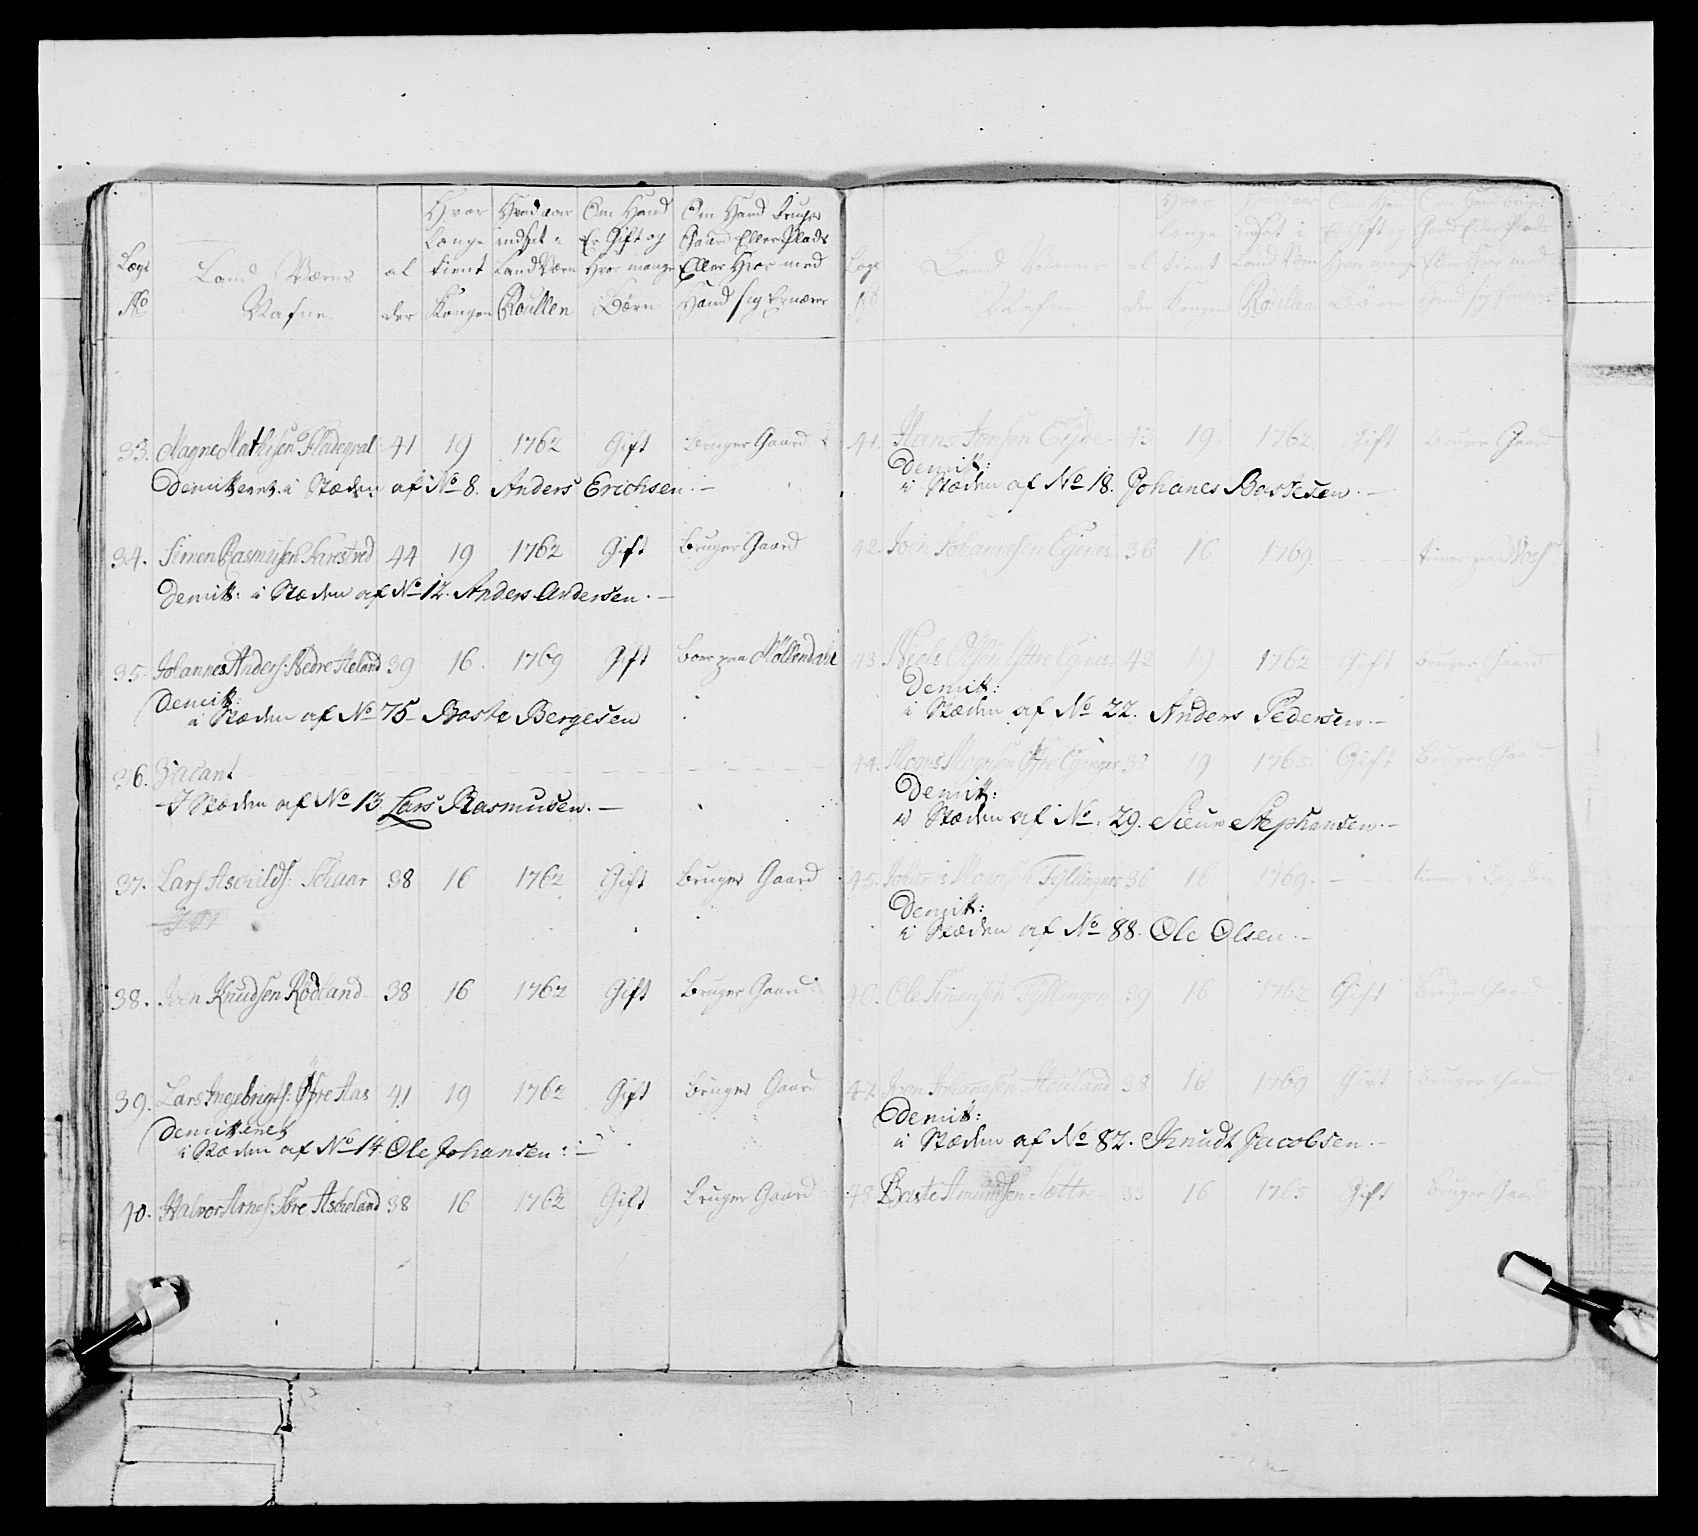 Lægs No | Land Værns Nafne | al der | Hvor Længe tient Kongen | Hvad aar indsat i Land Værn Roullen | Om Hand Er Gift og Hvor mange Børn | Om Hand bruger Gaard Eller Plads Eller Hvor med Hand sig Ernærer
33. Magne Mathisen Fladeqval 41 19 1762 Gift bruger Gaard
Demitteret i Stæden af No 8. Anders Erichsen.
34. Simen Rasmusen 44 19 1762 Gift bruger Gaard
Demitt: i Stæden af No 12. Anders Andersen.
35. Johannes Anders: Nedre 39 16. 1769 Gift boer paa Möllendahl
Demitt:
i Stæden af No 75 Baste Bergesen
36. Vacant
I Stæden af No 13 Lars Rasmusen.
37. Lars Aschilds: 38 16 1762 Gift bruger Gaard
38. Iven Knudsen Rödland 38 16 1762 Gift Bruger Gaard
39. Lars Ingebrigts: Öfre Aas 41 19 1762 Gift bruger Gaard
Demitteret
i Stæden af No 14. Ole Johansen:
40. Halvor Arnes: Ascheland 38 16 1762 Gift Bruger Gaard
Lægs No | Land Værns Nafne | al der | Hvor længe tient Kongen | Hvad aar indsat i Land Værn Roullen | Om Hand Er Gift og Hvor mange Börn | Om Hand bruger Gaard Eller Plads Eller Hvor med Hand sig Ernærer
41. Hans Jonsen Eyde 43 19 1762 Gift bruger Gaard
Demitt:
i Stæden af No 18. Johanes Bastesen.
42. Joen Johannesen 36 16 1769.
43. Neels Olsen Yttre 42 19 1762 Gift bruger Gaard
Demitt:
i Stæden af No 22. Anders Pedersen.
44. Mogns Mognsen Öfre 38 19 1765. Gift Bruger Gaard
Demitt:
i Stæden af No. 29. Siur Stephansen.
45. Johanis Mognsen Fyllingnes 36 16 1769.
Demitt:
i Stæden af No 88. Ole Olsen.
46. Ole Simensen Fyllingen 39 16 1762 Gift Bruger Gaard
47. Iven Johannesen Hauland 38 16 1769 Gift Bruger Gaard
Demitt:
i Stæden af No 82. Knudt Jacobsen.
48. Baste Amundsen Sættre 33 16 1765 Gift Bruger Gaard